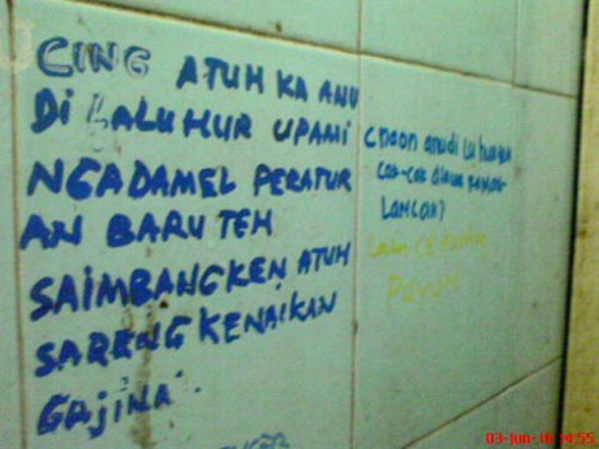 CING ATUH KA ANU
DI LALUHUR UPAMI
NGADAMEL PERATUR
AN BARU TEH
SAIMBANGKEN ATUH
SARENG KENAIKAN
GAJINA'.
cnaon anu di
cak-cak
LANCAH?
PAYUN
03-Jun-10 14:55